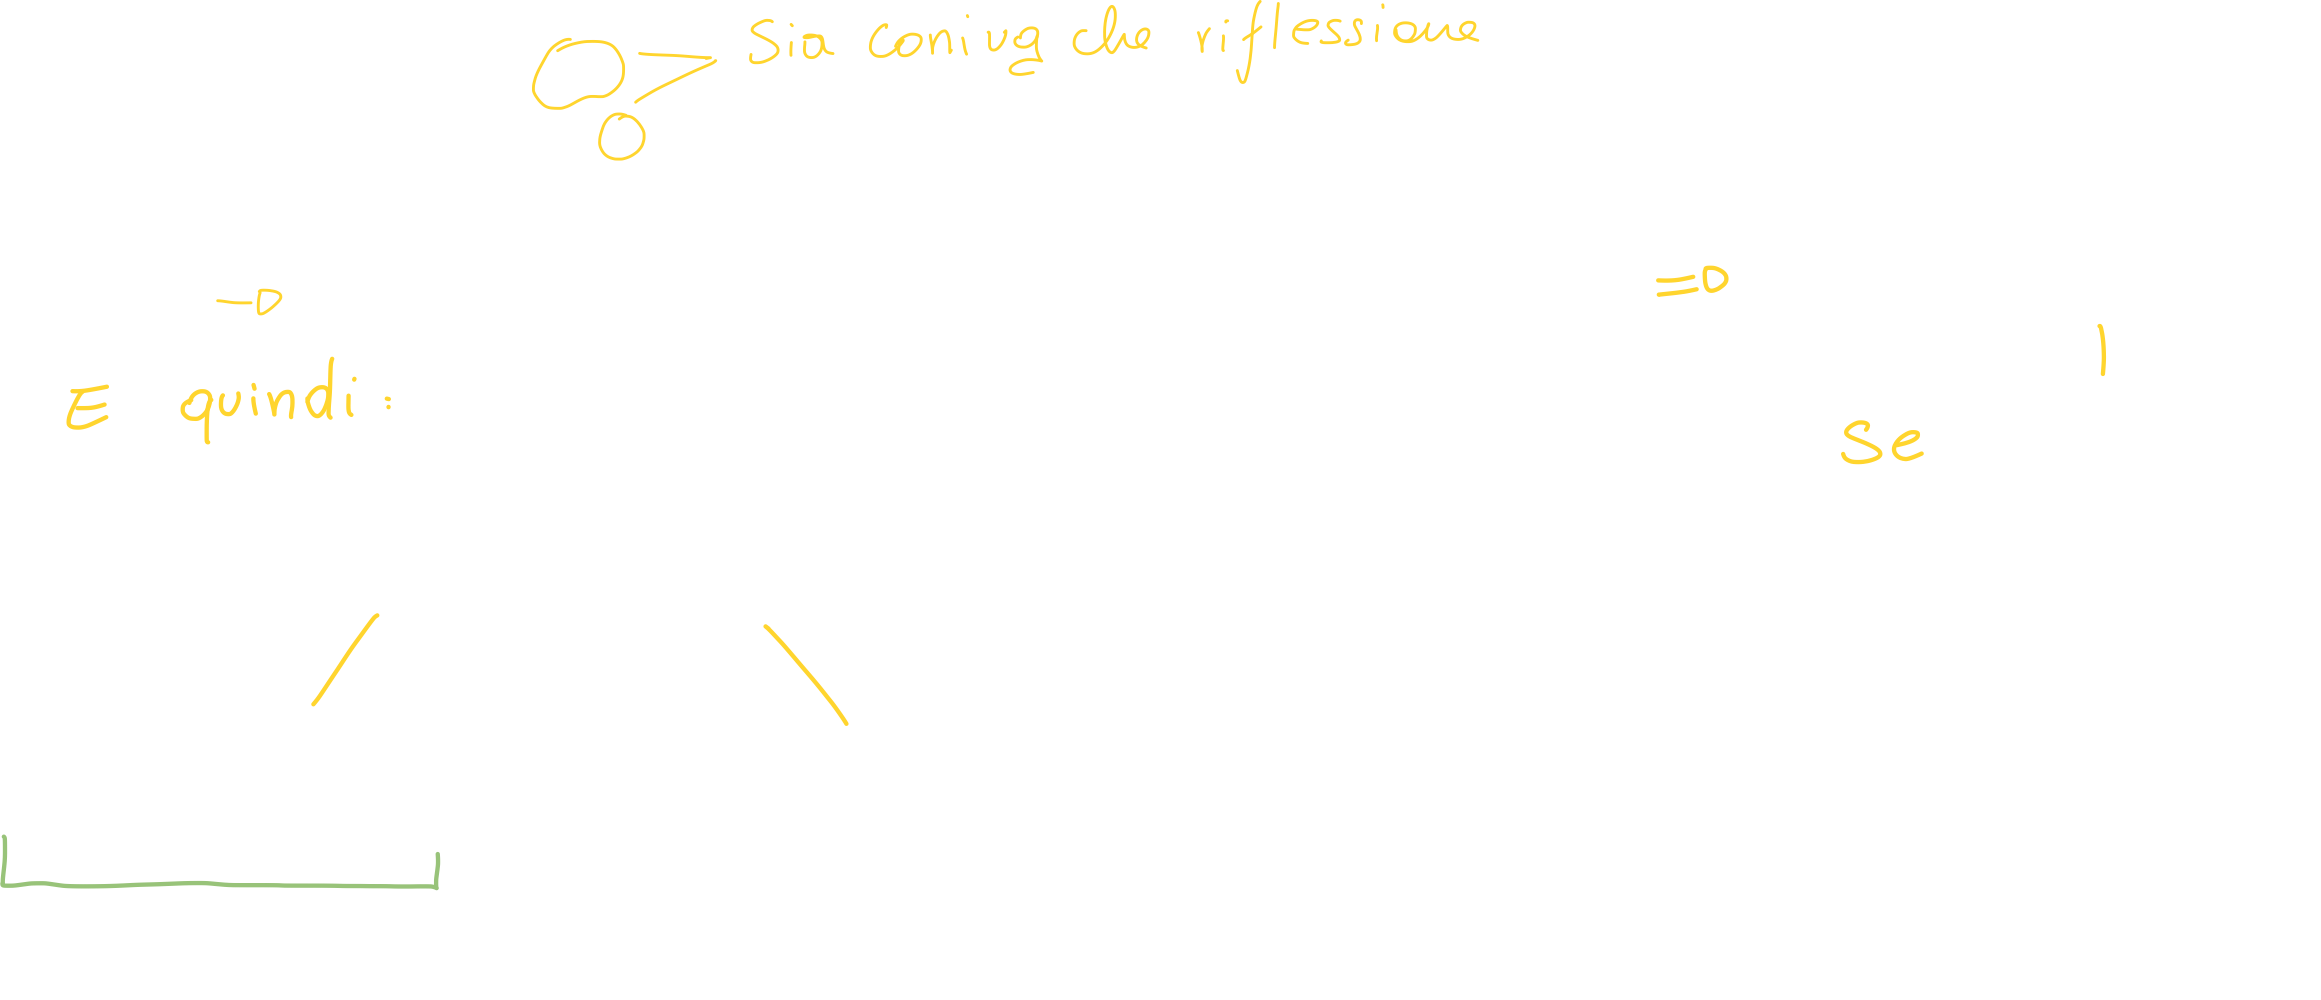 Sia coniug che riflessione
⇒
→
E quindi:
Se